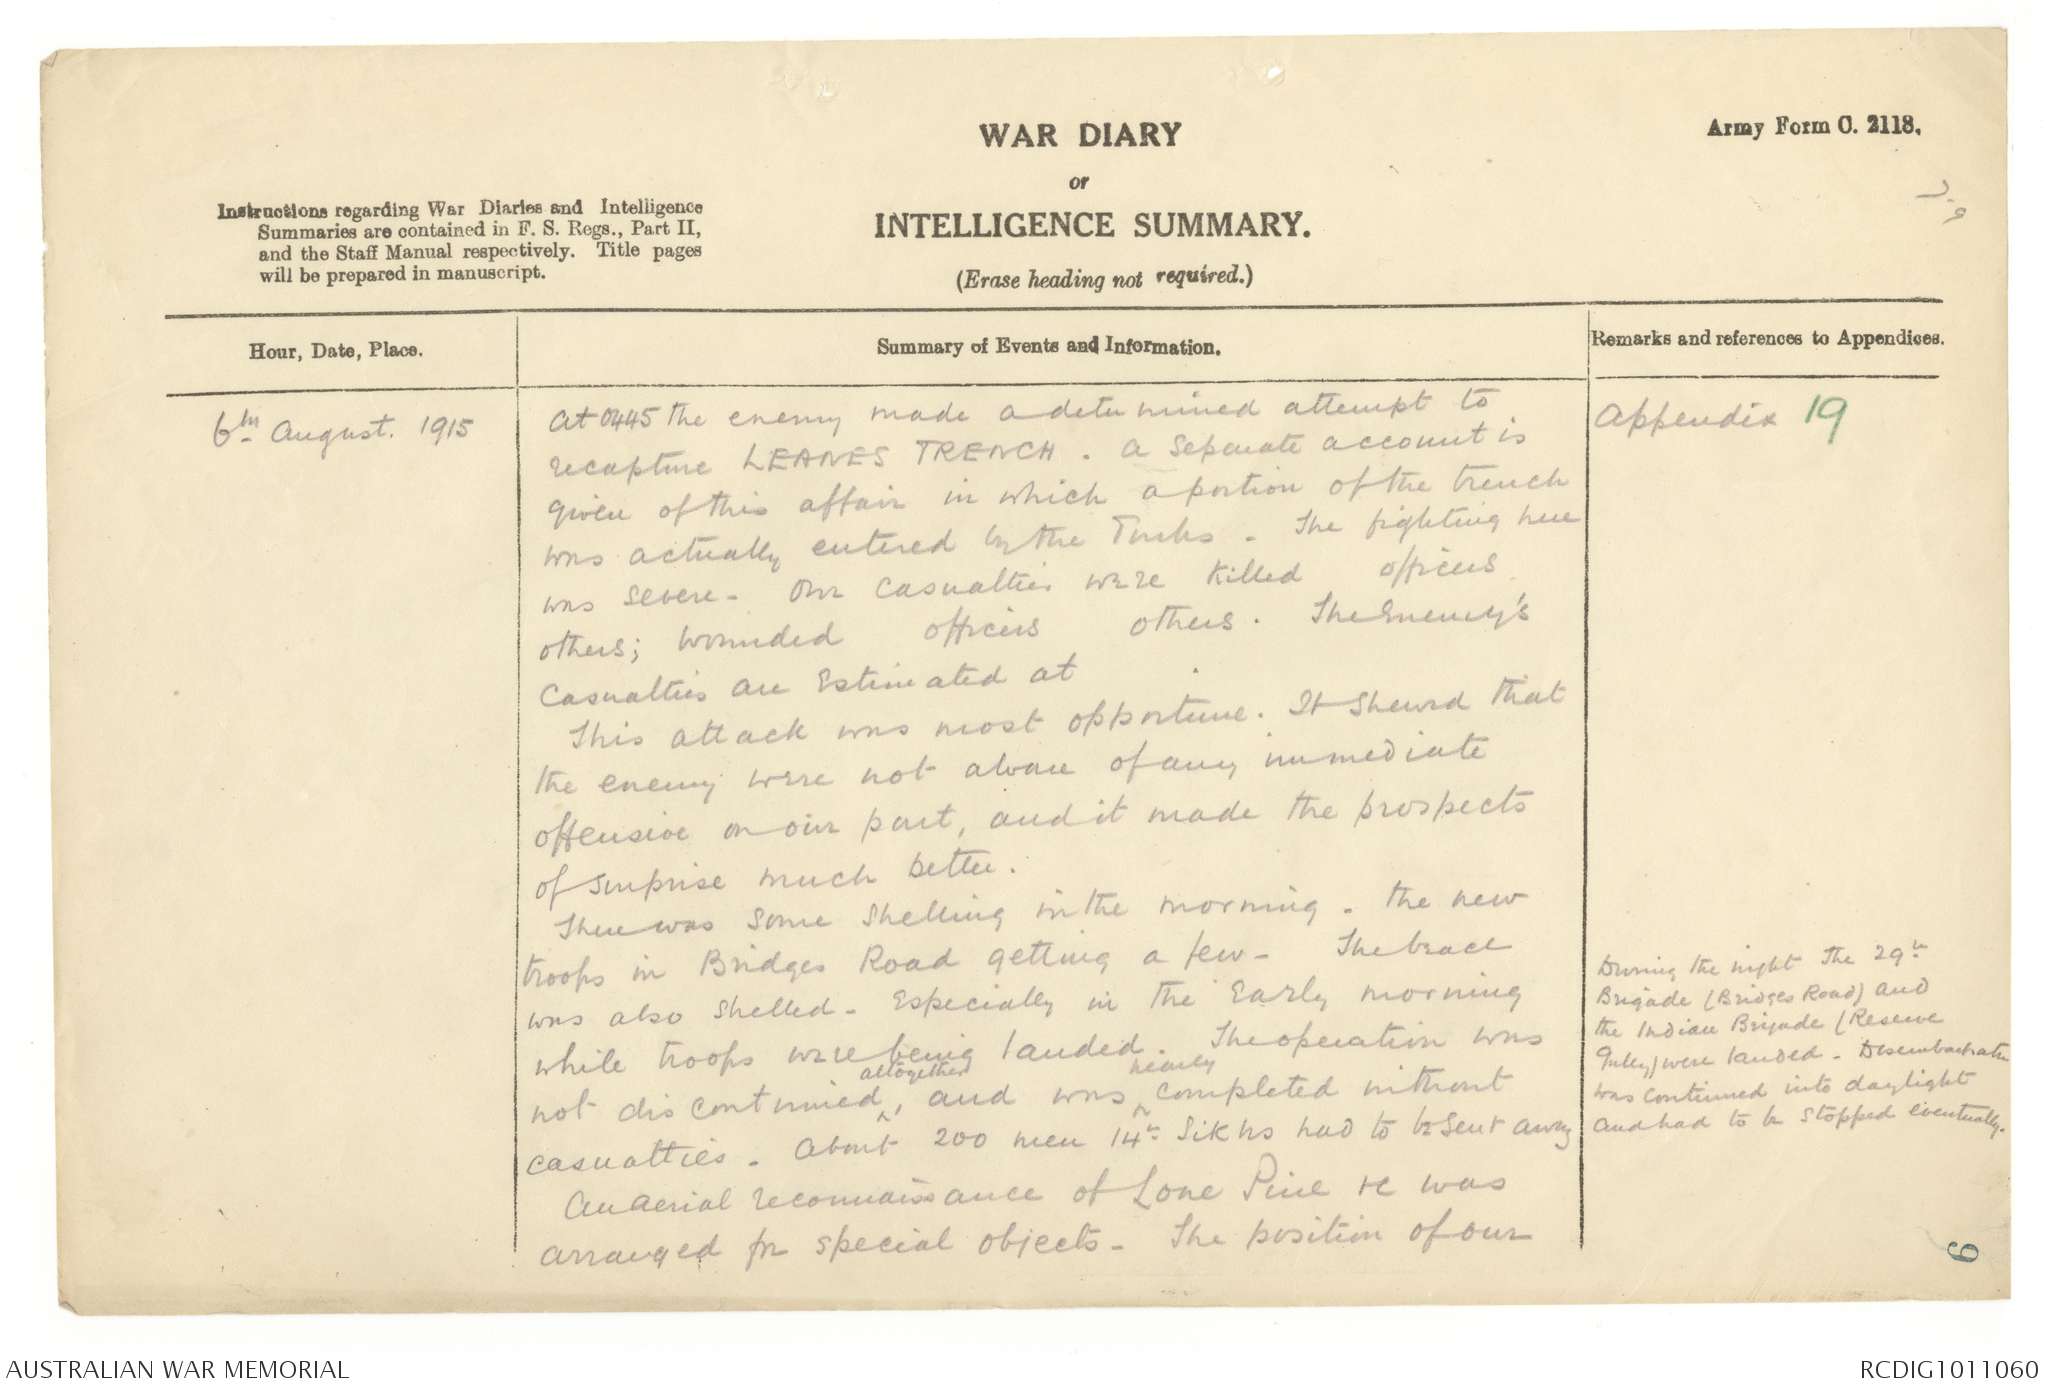 WAR DIARY
or
INTELLIGENCE SUMMARY.
(Erase heading not required.)
Army Form C. 2118.
Instructions regarding War Diaries and Intelligence
Summaries are contained in F. S. Regs., Part II,
and the Staff Manual respectively. Title pages
will be prepared in manuscript.
Hour, Date, Place.
Summary of Events and Information.
Remarks and references to Appendices.
6th August. 1915
At 0445 the enemy made a determined attempt to
recapture LEANES TRENCH. A separate account is
given of this affair in which a portion of the trench
was actually entered by the Turks. The fighting here
was severe. Our casualties were killed officers
others; wounded officers others. The Enemy's
casualties are estimated at
This attack was most opportune. It shewed that
the enemy were not aware of any immediate
offensive on our part, and it made the prospects
of surprise much better.
There was some shelling in the morning. the new
troops in Bridges Road getting a few. The beach
was also shelled. Especially in the early morning
while troops were being landed. The operation was
not discontinued altogether, and was nearly completed without
casualties. About 200 men 14th Sikhs had to be sent away
An aerial reconnaissance of Lone Pine &c was
arranged for special objects. The position of our
Appendix 19
During the night the 29th
Brigade (Bridges Road) and
the Indian Brigade (Reserve
Gulley) were landed. Disembarkation
was continued into daylight
and had to be stopped eventually.
6
AUSTRALIAN WAR MEMORIAL
RCDIG1011060